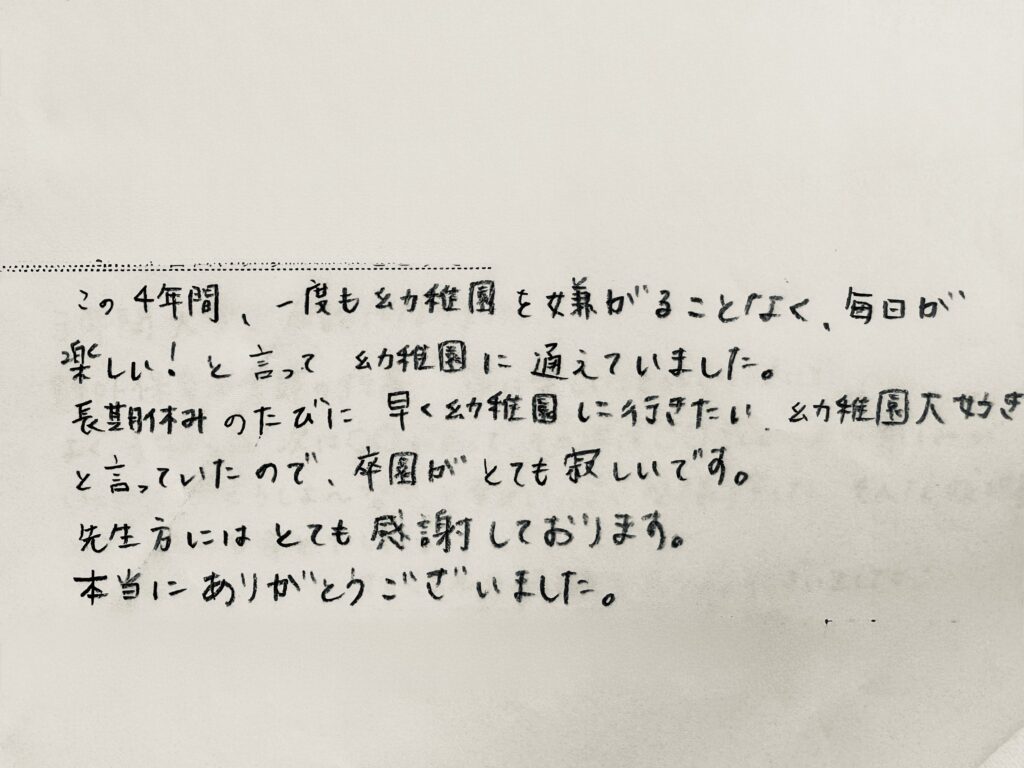 この4年間、一度も幼稚園を嫌がることなく、毎日が
楽しい!と言って幼稚園に通えていました。
長期休みのたびに早く幼稚園に行きたい、幼稚園大好き
と言っていたので、卒園がとても寂しいです。
先生方にはとても感謝しております。
本当にありがとうございました。